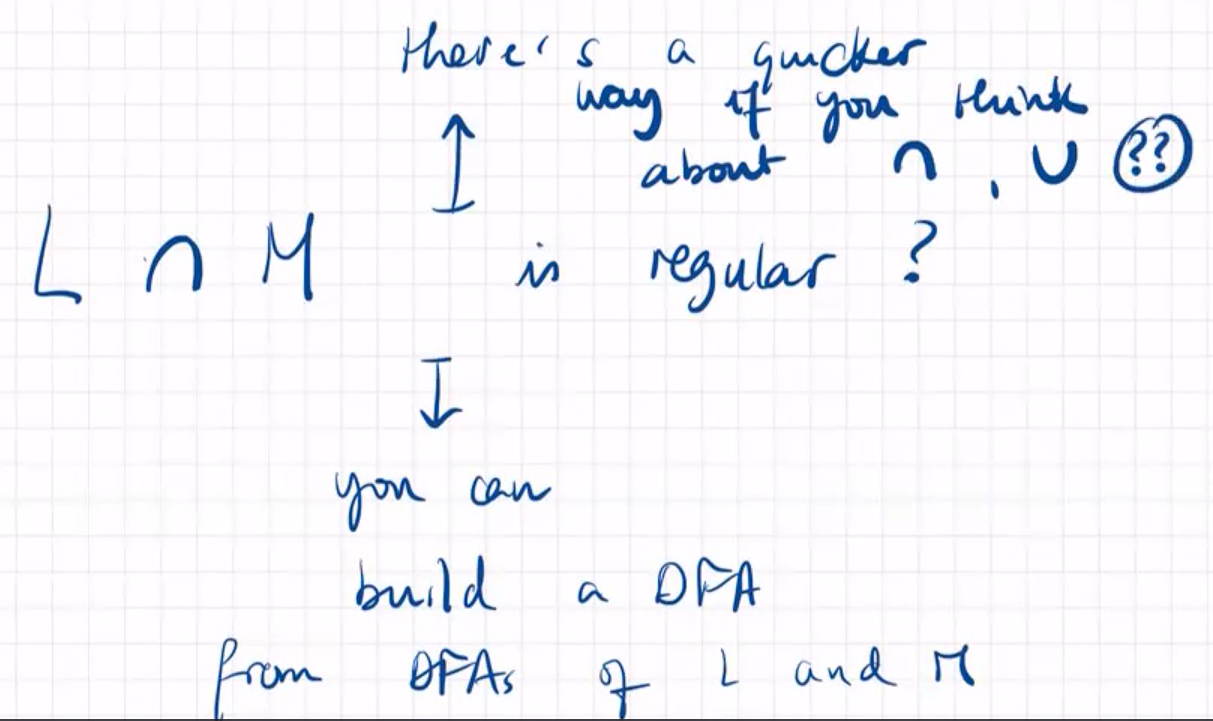 there's a quicker
way if you think
about ∩, ∪ ??
L ∩ M is regular ?
you can
build a DFA
from DFAs of L and M